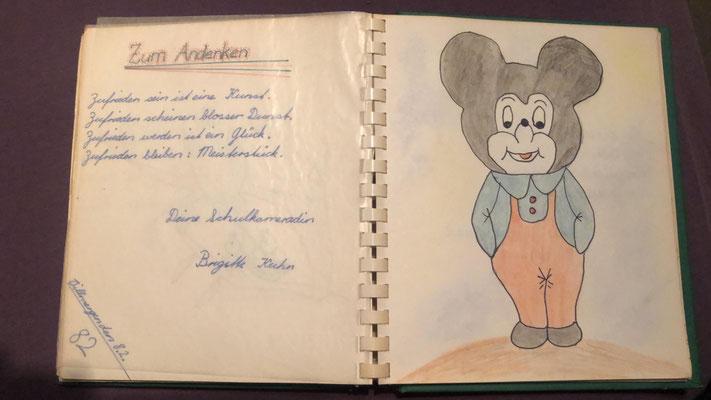 Zum Andenken
Zufrieden sein ist eine Kunst.
Zufrieden scheinen blosser Dunst.
Zufrieden werden ist ein Glück.
Zufrieden bleiben: Meisterstück.
Deine Schulkameradin
Brigitte Kuhn
Villmergen den 8.2.
82